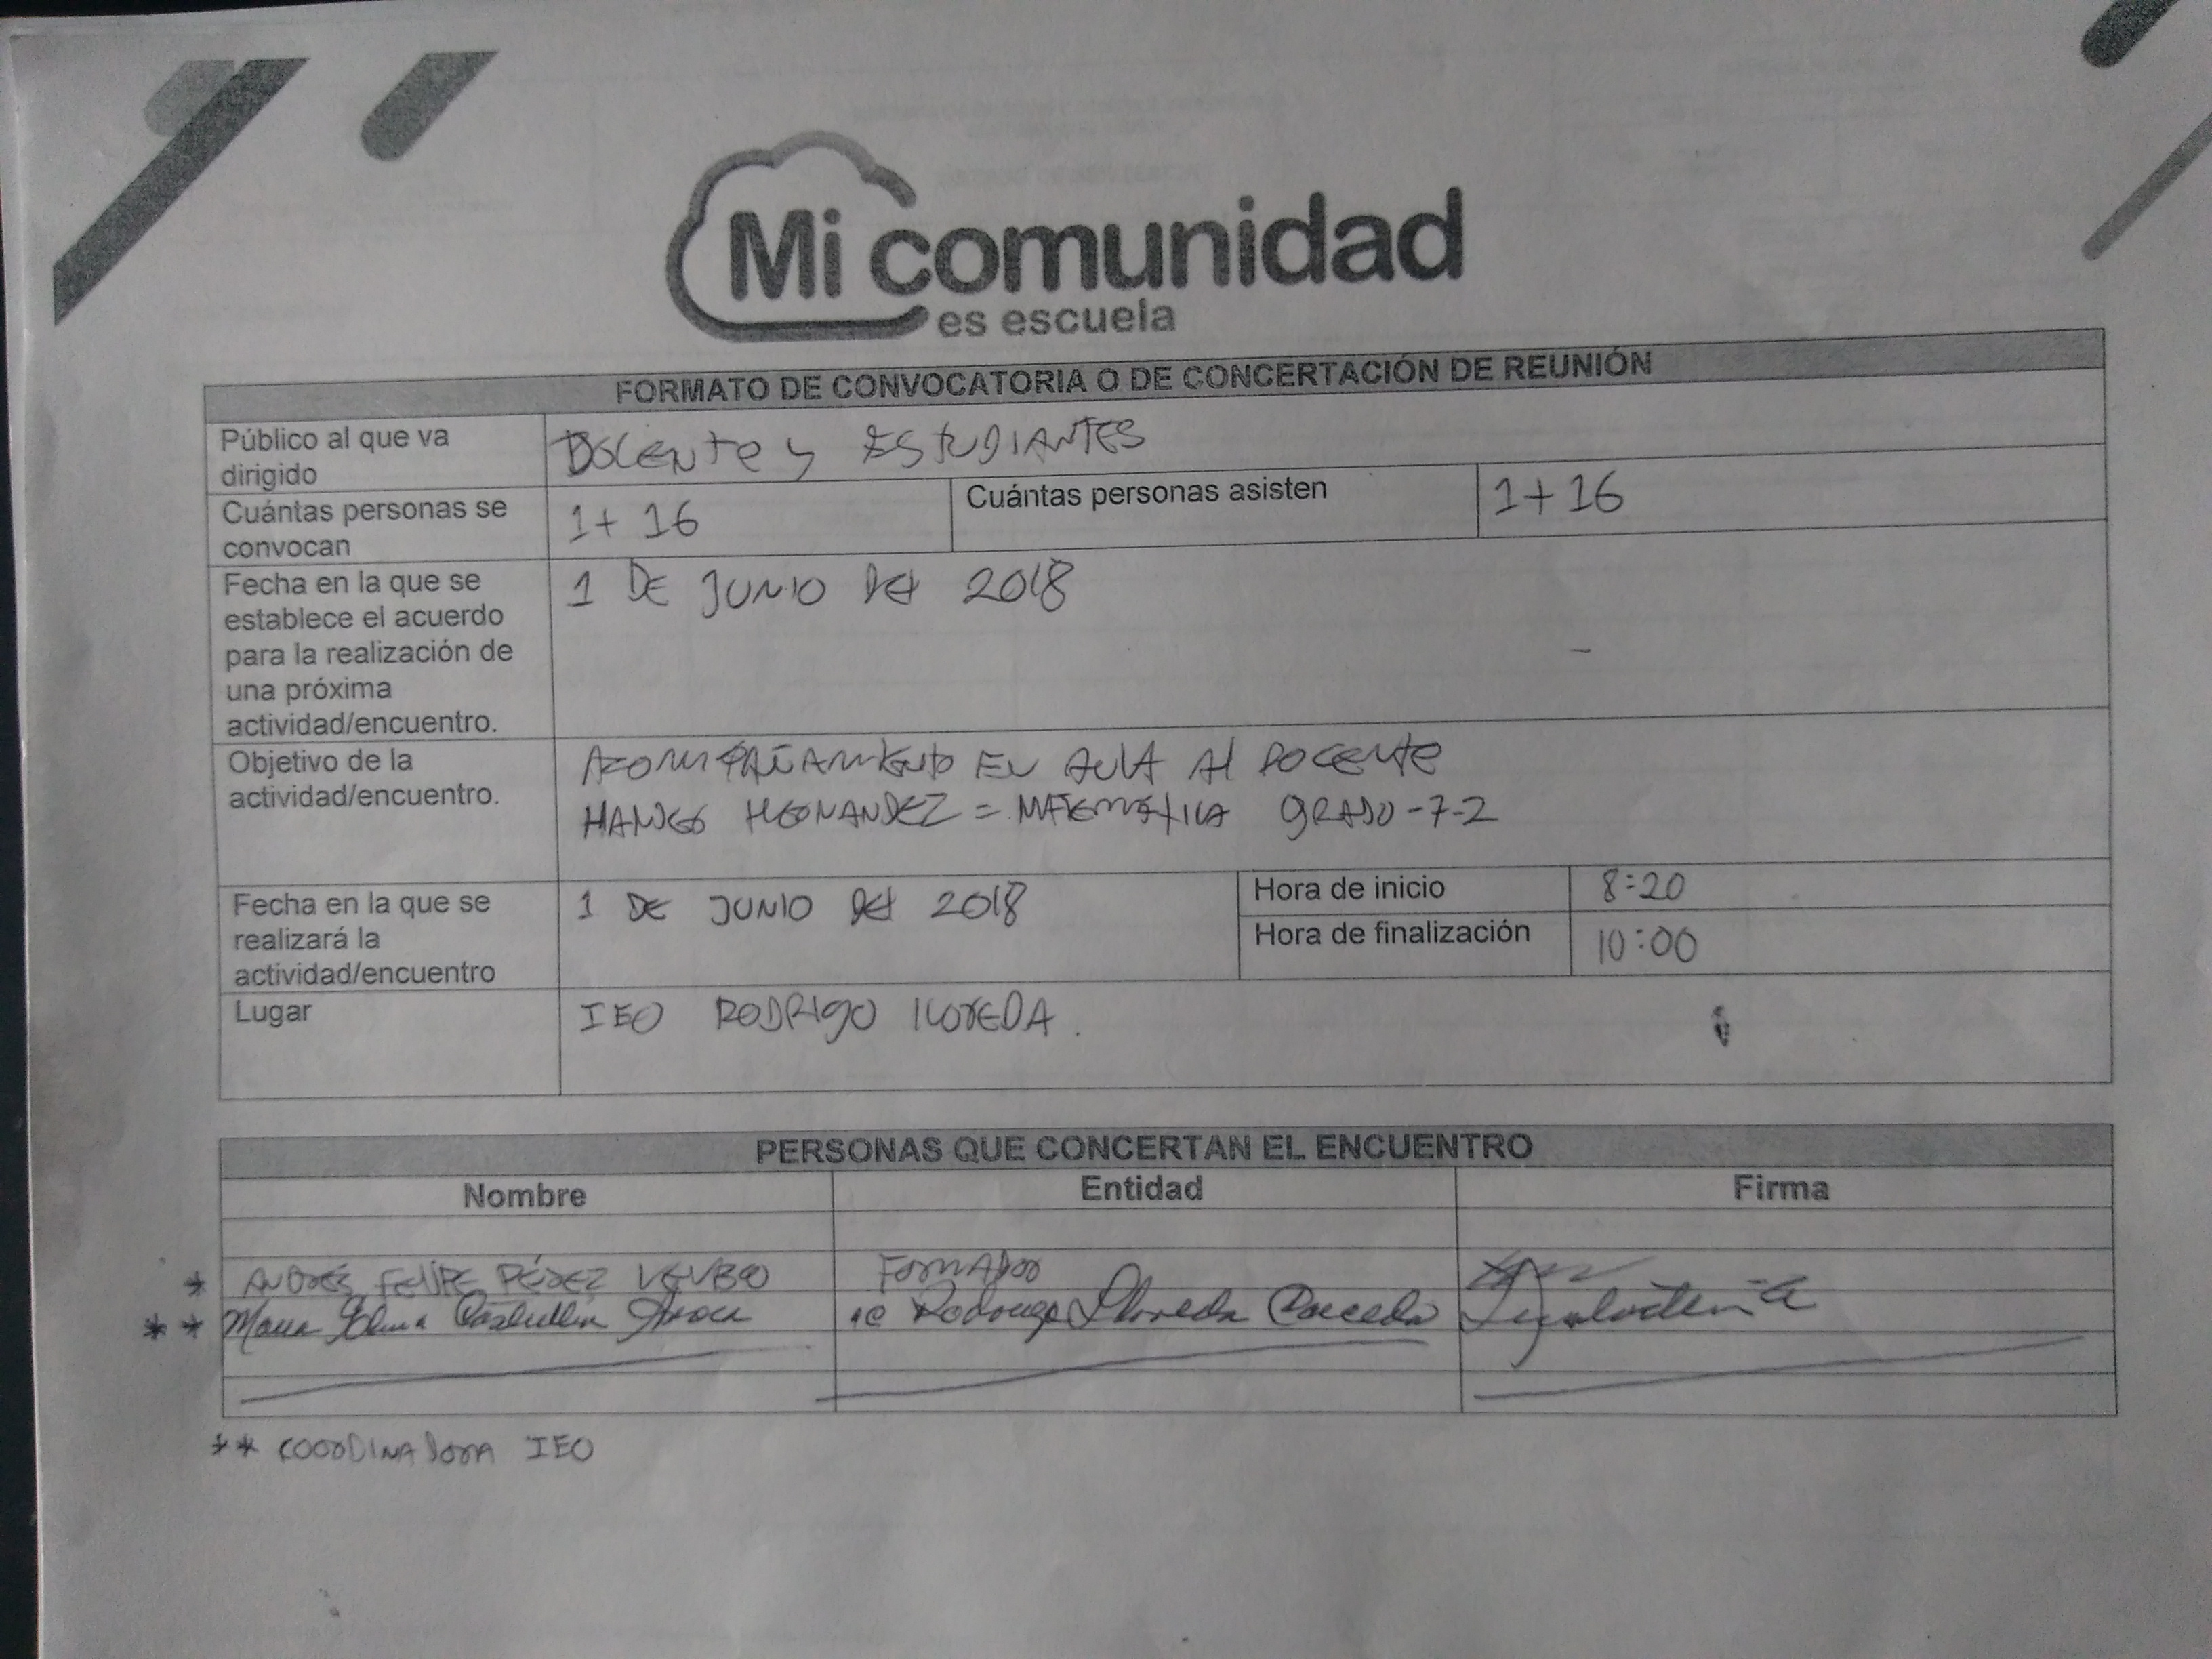 Mi comunidad
es escuela
FORMATO DE CONVOCATORIA O DE CONCERTACIÓN DE REUNIÓN
Público al que va
dirigido
DOCENTE y ESTUDIANTES
Cuántas personas se
convocan
1+ 16
Cuántas personas asisten
1+ 16
Fecha en la que se
establece el acuerdo
para la realización de
una próxima
actividad/encuentro.
1 DE JUNIO DEL 2018
Objetivo de la
actividad/encuentro.
ACOMPAÑAMIENTO EN AULA AL DOCENTE
HERNANDEZ = MATEMÁTICA GRADO-7-2
Fecha en la que se
realizará la
actividad/encuentro
1 DE JUNIO DEL 2018
Hora de inicio
8:20
Hora de finalización
10:00
Lugar
IEO RODRIGO LLOREDA.
PERSONAS QUE CONCERTAN EL ENCUENTRO
Nombre Entidad Firma
* ANDRÉS FELIPE PÉREZ FORMADOR
** Maria Rodrigo Lloreda Caicedo
** COORDINADORA IEO